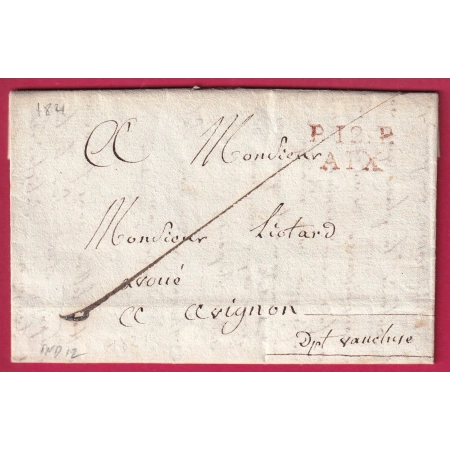 184
P.12.P.
AIX
A Monsieur
Monsieur Liotard
avoué
a avignon
Dpt vaucluse
IND 12